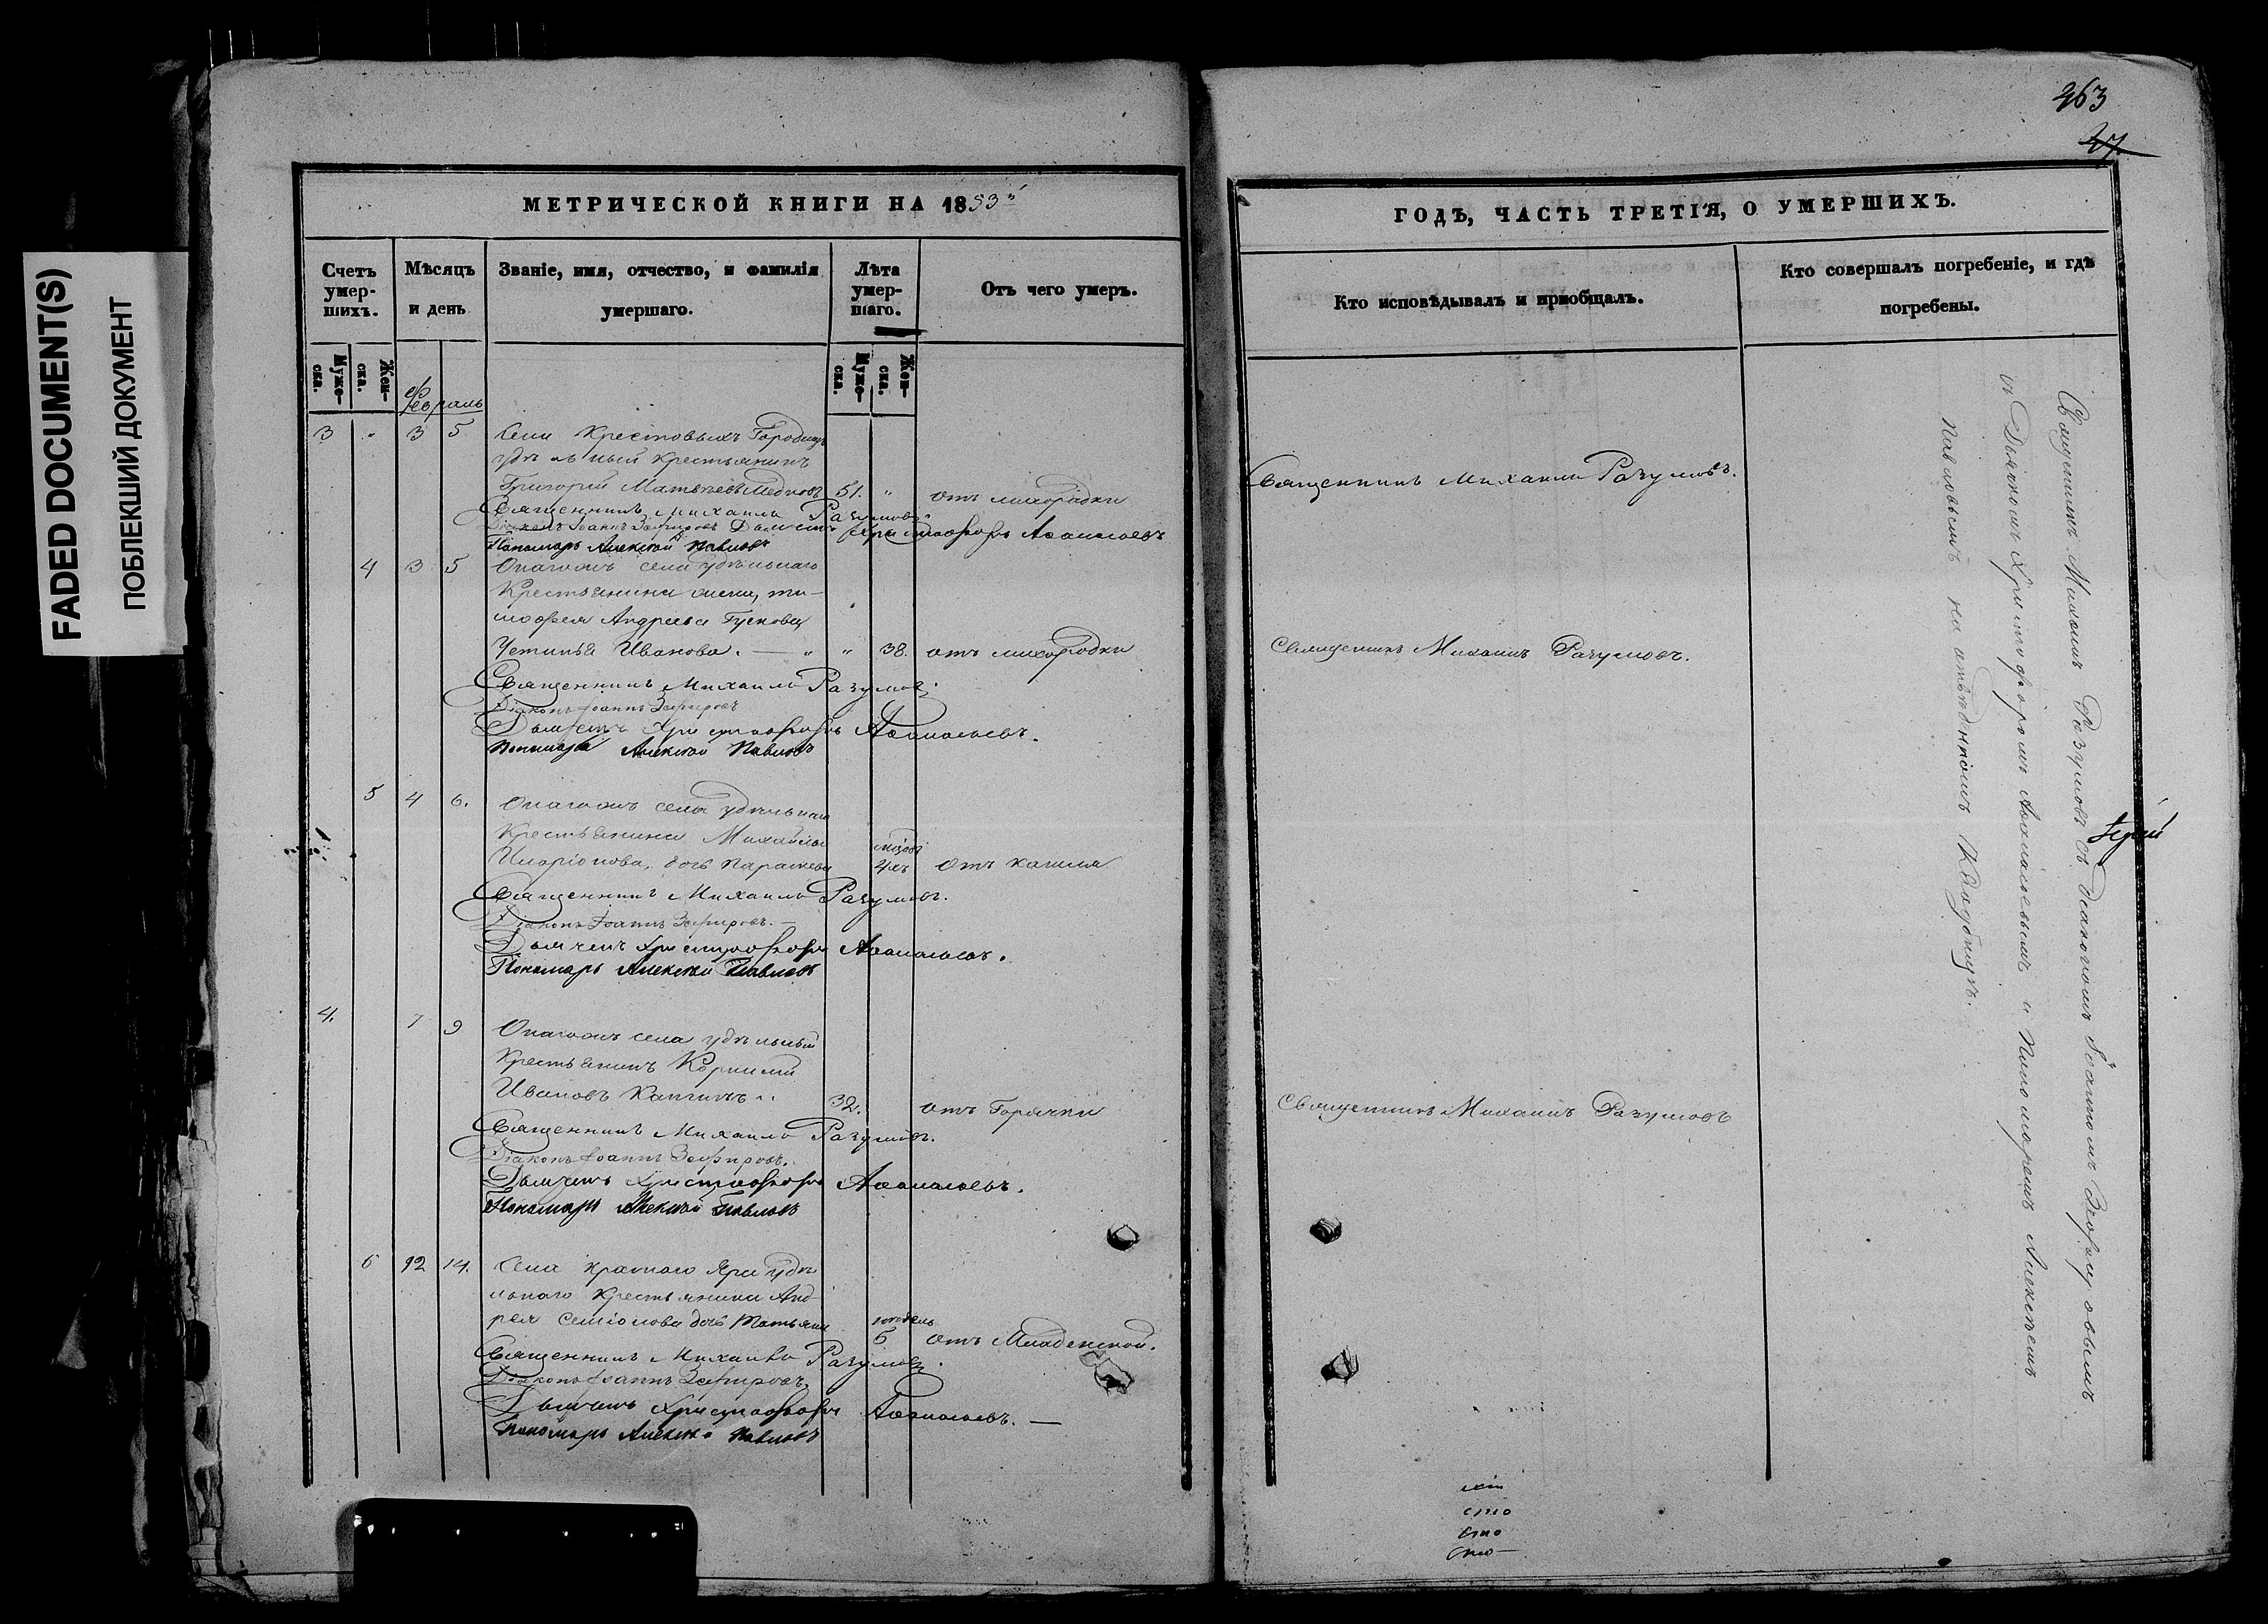 FADED DOCUMENT(S)
ПОБЛЕКШИЙ ДОКУМЕНТ
363
27.
МЕТРИЧЕСКОЙ КНИГИ НА 1853й
Счетъ умер-шихъ.
Мѣсяцъ и день
Званіе, имя, отчество, и фамилія умершаго.
Лѣта умер-шаго.
Отъ чего умеръ.
Муже-ска.
Жен-ска.
Муже-ска.
Жен-ска.
Февраль
3 " 3 5 Села Крестовыхъ Городищъ
удѣльный Крестьянинъ
Григорій Матвѣевъ 51. " отъ лихорадки
Священникъ Михаилъ Разумовъ
Діаконъ Іоаннъ Зефировъ Дьячекъ Христофоръ Аѳанасьевъ
Пономарь Алексѣй Павловъ
4 3 5 Онагожъ села удѣльнаго
Крестьянина жена, ти-
мофея Андреева Гускова
Устинья Иванова. — " " 38. отъ лихорадки
Священникъ Михаилъ Разумовъ.
Діаконъ Іоаннъ Зефировъ
Дьячекъ Христофоръ Аѳанасьевъ.
Пономарь Алексѣй Павловъ
5 4 6. Онагожъ села удѣльнаго
Крестьянина Михайлы
Иларіонова, дочь Параскева 4хъ отъ кашля
Священникъ Михаилъ Разумовъ.
Діаконъ Іоаннъ Зефировъ. —
Дьячекъ Христофоръ Аѳанасьевъ.
Пономарь Алексѣй Павловъ
4. 7 9 Онагожъ села удѣльный
Крестьянинъ Корнилій
Ивановъ 32. отъ Горячки
Священникъ Михаилъ Разумовъ.
Діаконъ Іоаннъ Зефировъ.
Дьячекъ Христофоръ Аѳанасьевъ.
Пономарь Алексѣй Павловъ
6 12 14. Села Краснаго Яра удѣ
льнаго Крестьянина Анд
рея Семіонова дочь Татьяна недѣль
6 отъ Младенской.
Священникъ Михаилъ Разумовъ.
Діаконъ Іоаннъ Зефировъ.
Дьячекъ Христофоръ Аѳанасьевъ. —
Пономарь Алексѣй Павловъ
ГОДЪ, ЧАСТЬ ТРЕТІЯ, О УМЕРШИХЪ.
Кто исповѣдывалъ и пріобщалъ.
Кто совершалъ погребеніе, и гдѣ погребены.
Священникъ Михаилъ Разумовъ.
Священникъ Михаилъ Разумовъ.
Священникъ Михаилъ Разумовъ
Священникъ Михаилъ Разумовъ съ діакономъ Іоанномъ Зефировымъ
съ Дьячкомъ Христофоромъ Аѳанасьевымъ и Пономаремъ Алексѣемъ
Павловымъ на отведенномъ Кладбищѣ.
Іерей